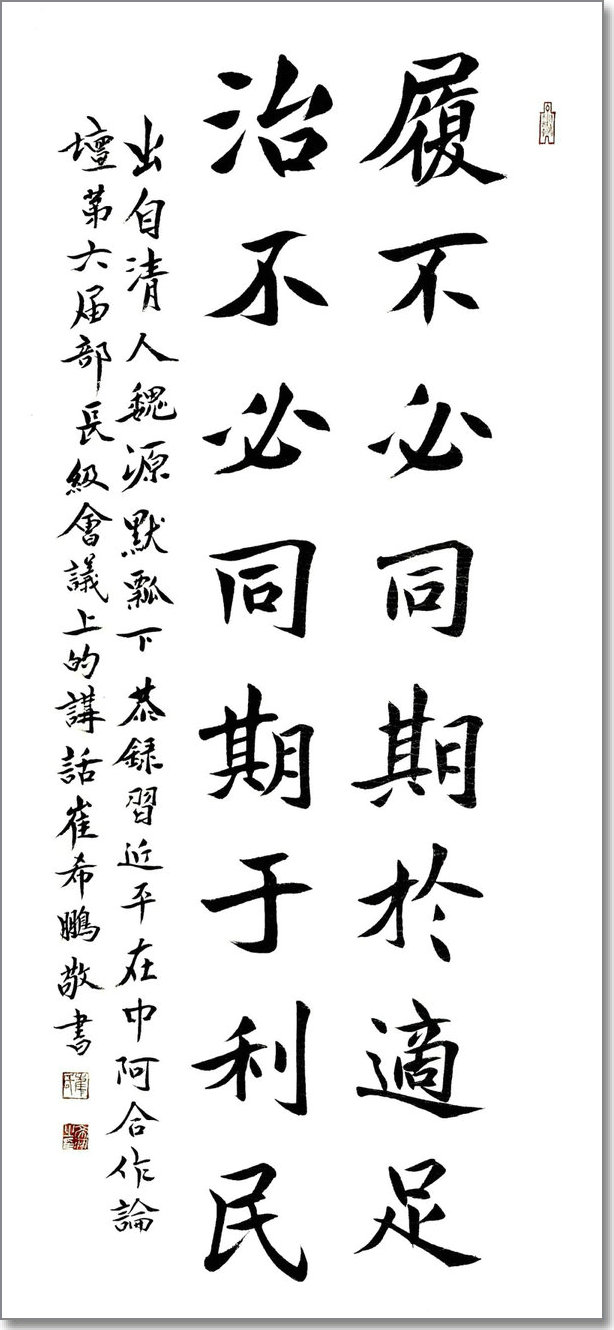 履不必同期於適足
治不必同期于利民
出自清人魏源默瓢下恭録習近平在中阿合作論
壇第六届部長級會議上的講話崔希鵬敬書